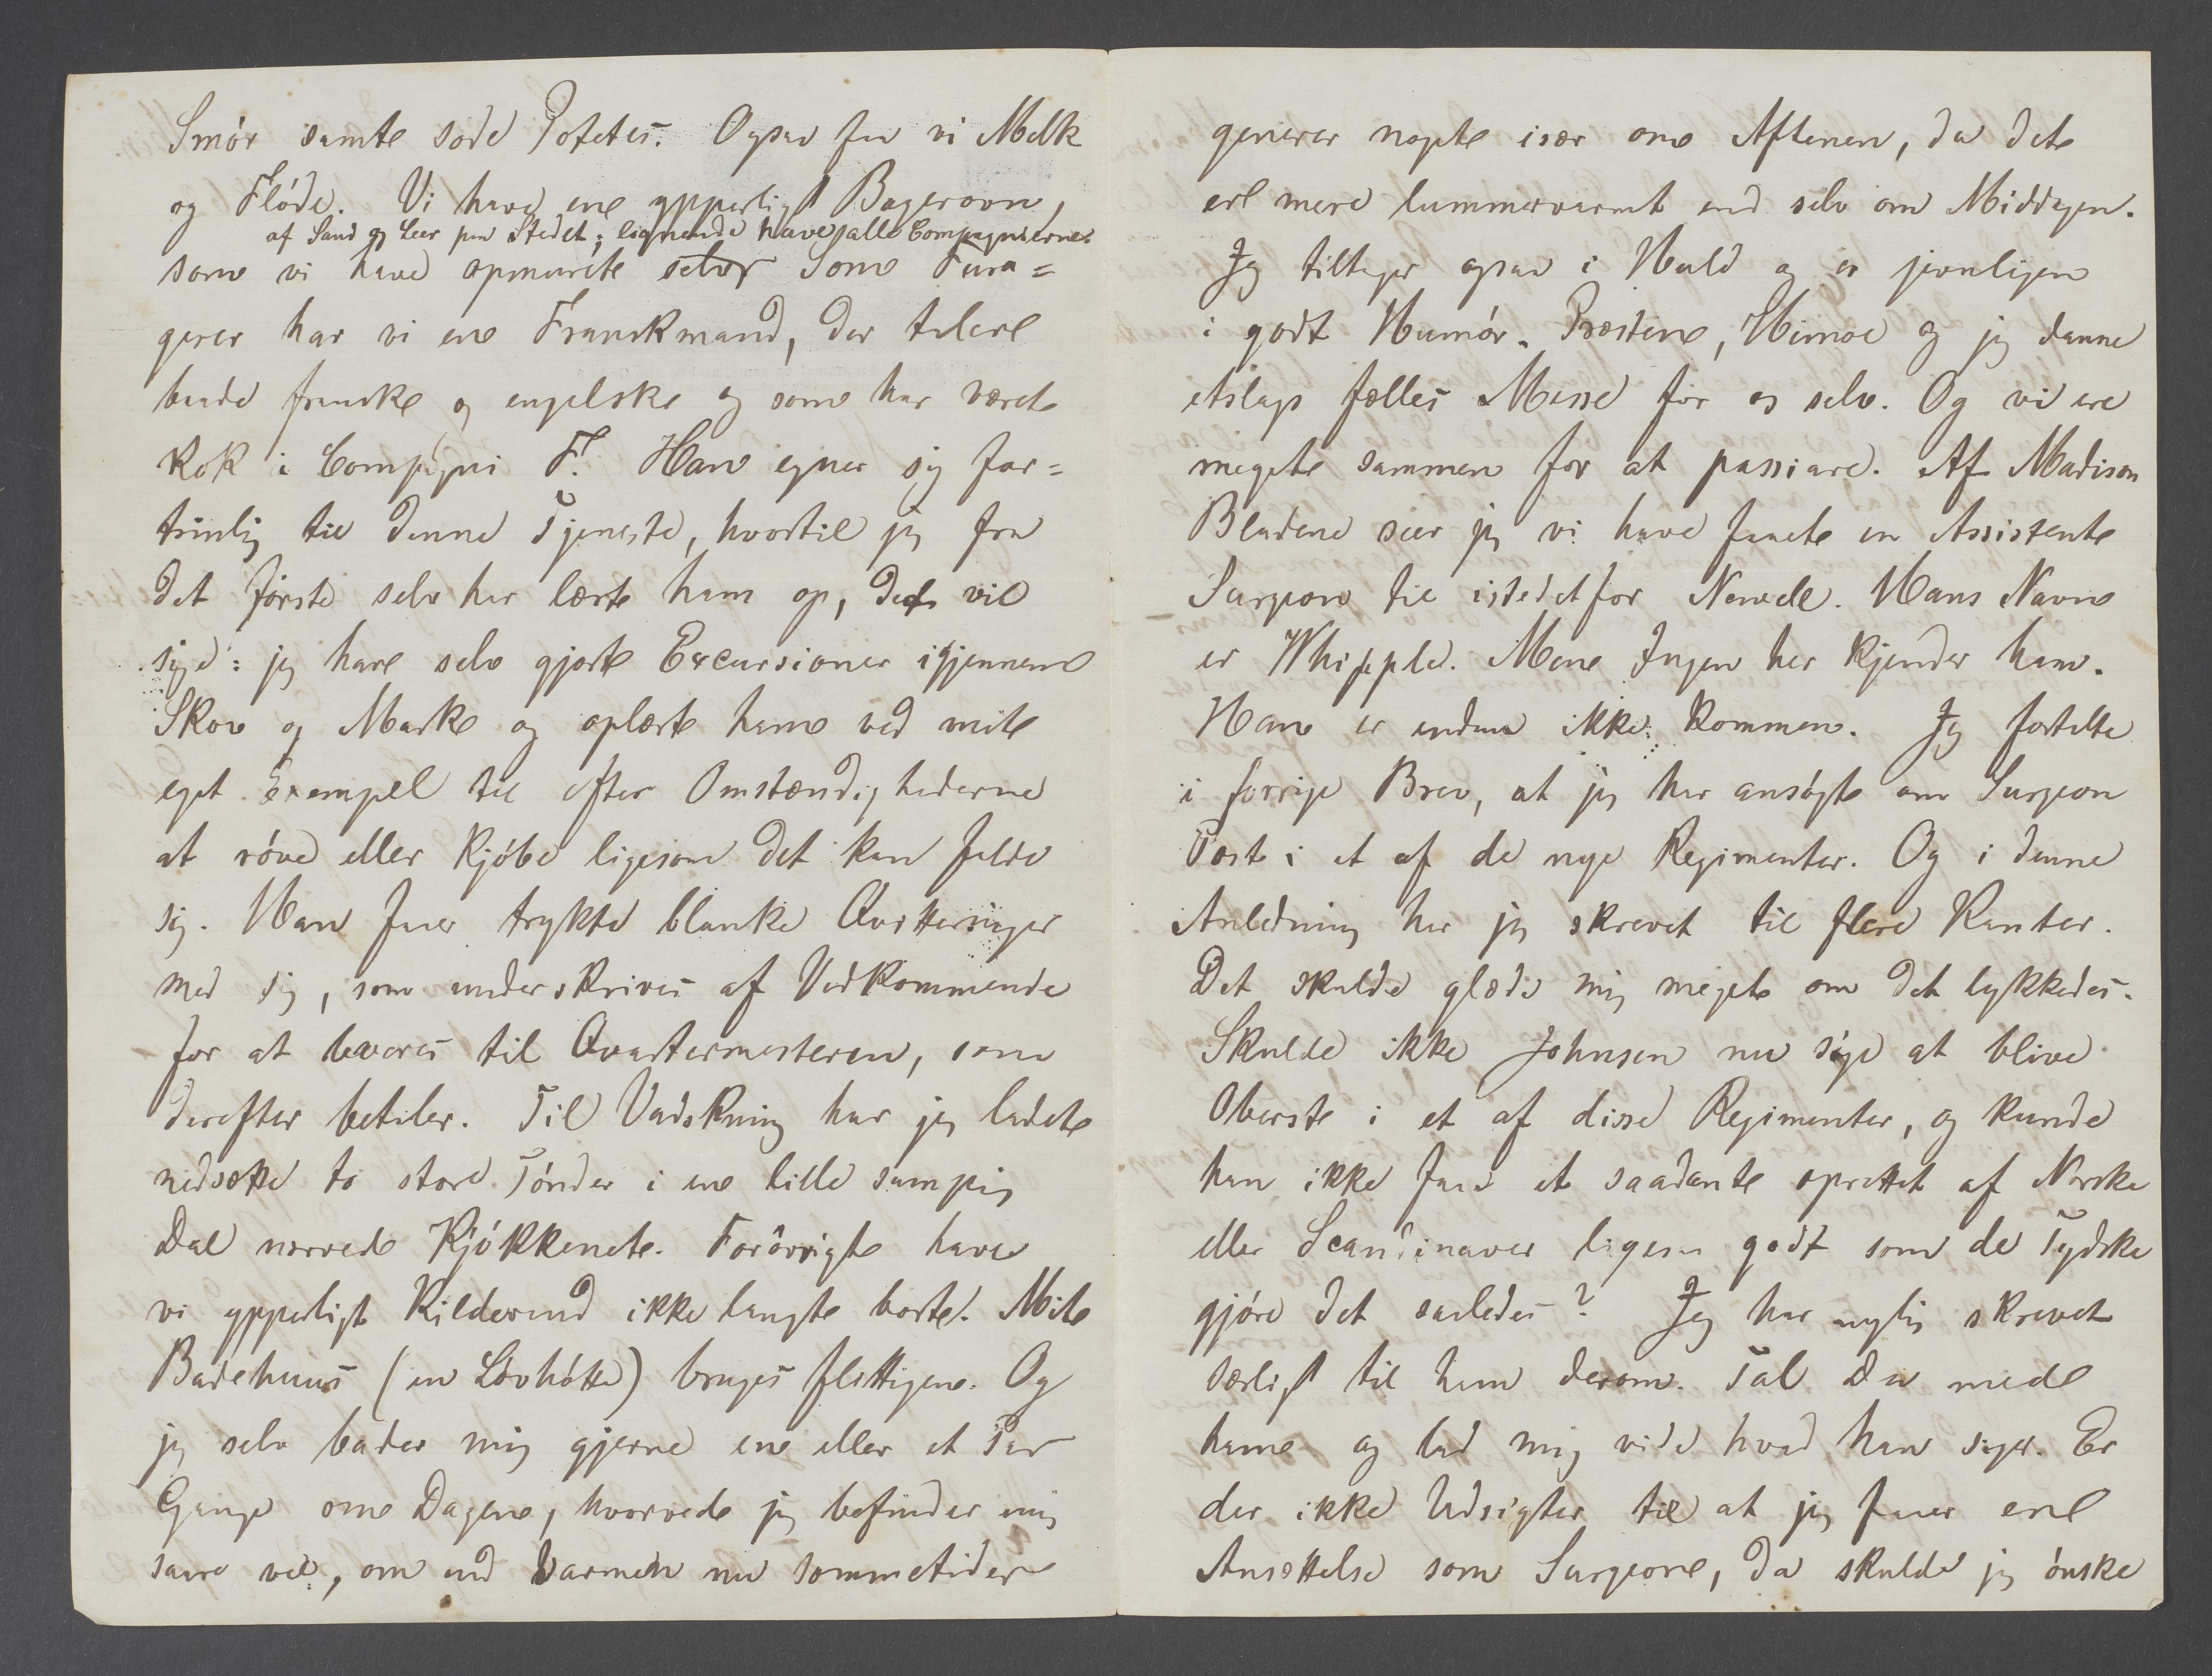 Smör samt söde Potetes. Ogsaa faa vi Melk
og Flöde. Vi have en ypperligt Bagerovn,
af Sand og Leer paa Stedet; lignende have alle Compagnierne
som vi have opmuret selv. Som Fura=
gerer har vi en Franskmand, der taler
baade franske og engelske og som har været
Kok i Compagni F. Han egner sig for=
trinlig til denne Tjeneste, hvortil jeg fra
det förste selv har lært ham op, det vil
sige: jeg har selv gjort Excursioner igjennem
Skov og Mark og oplært ham ved mit
eget Exempel til efter Omstændighederne
at röve eller kjöbe ligesom det kan falde
sig. Man faaer trykte blanke Qvitteringer
med sig, som underskrives af Vedkommende
for at leveres til Qvartermesteren, som
derefter betaler. Til Vadskning har jeg ladet
nedsætte to store Tönder i en lille sumpig
Dal nærved Kjökkenet. Forövrigt have
vi ypperligt Kildevand ikke langt borte. Mit
Badehuus (en Lövhötte) bruges flittigen. Og
jeg selv bader mig gjerne en eller et Par
Gange om Dagen, hvorved jeg befinder mig
saare vel, om end Varmen nu sommetider
generer noget især om Aftenen, da det
er mere lummervarmt end selv om Middagen.
Jeg tiltager ogsaa i Huld og er jevnligen
i godt Humör. Præsten, Himoe og jeg danne
etslags fælles Messe for os selv. Og vi ere
meget sammen for at passiare. Af Madison
Bladene seer jeg vi have faaet en Assistent
Surgeon til istedetfor Newell. Hans Navn
er Whipple. Men Ingen her kjender ham.
Han er endnu ikke kommen. Jeg fortalte
i forrige Brev, at jeg har ansögt om Surgeon
Post i et af de nye Regimenter. Og i denne
Anledning har jeg skrevet til flere Kanter.
Det skulde glæde mig meget om det lykkedes.
Skulde ikke Johnsen nu söge at blive
Oberst i et af disse Regimenter, og kunde
han ikke faae et saadant oprettet af Norske
eller Scandinaver ligesaa godt som de Tydske
gjöre det saaledes? Jeg har nylig skrevet
særligt til ham derom. Tal Du med
ham og lad mig vide hvad han siger. Er
der ikke Udsigter til at jeg faaer en
Ansættelse som Surgeon, da skulde jeg önske